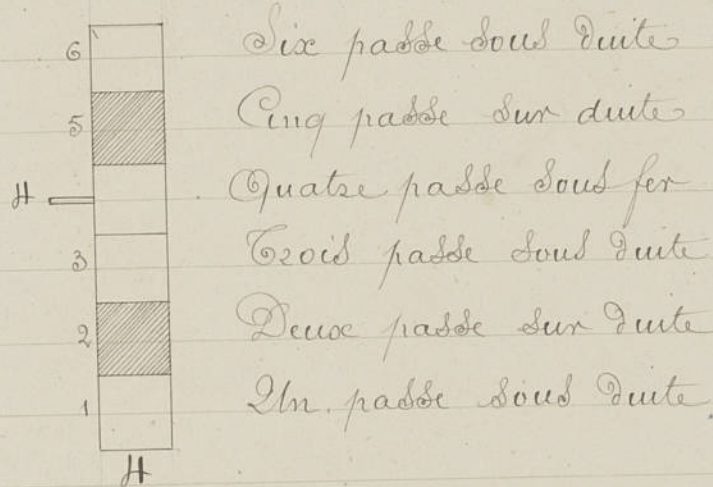 6 Six passe sous duite
5 Cinq passe sur duite
H Quatre passe sous fer
3 Trois passe sous duite
2 Deux passe sur duite
1 Un passe sous duite
H